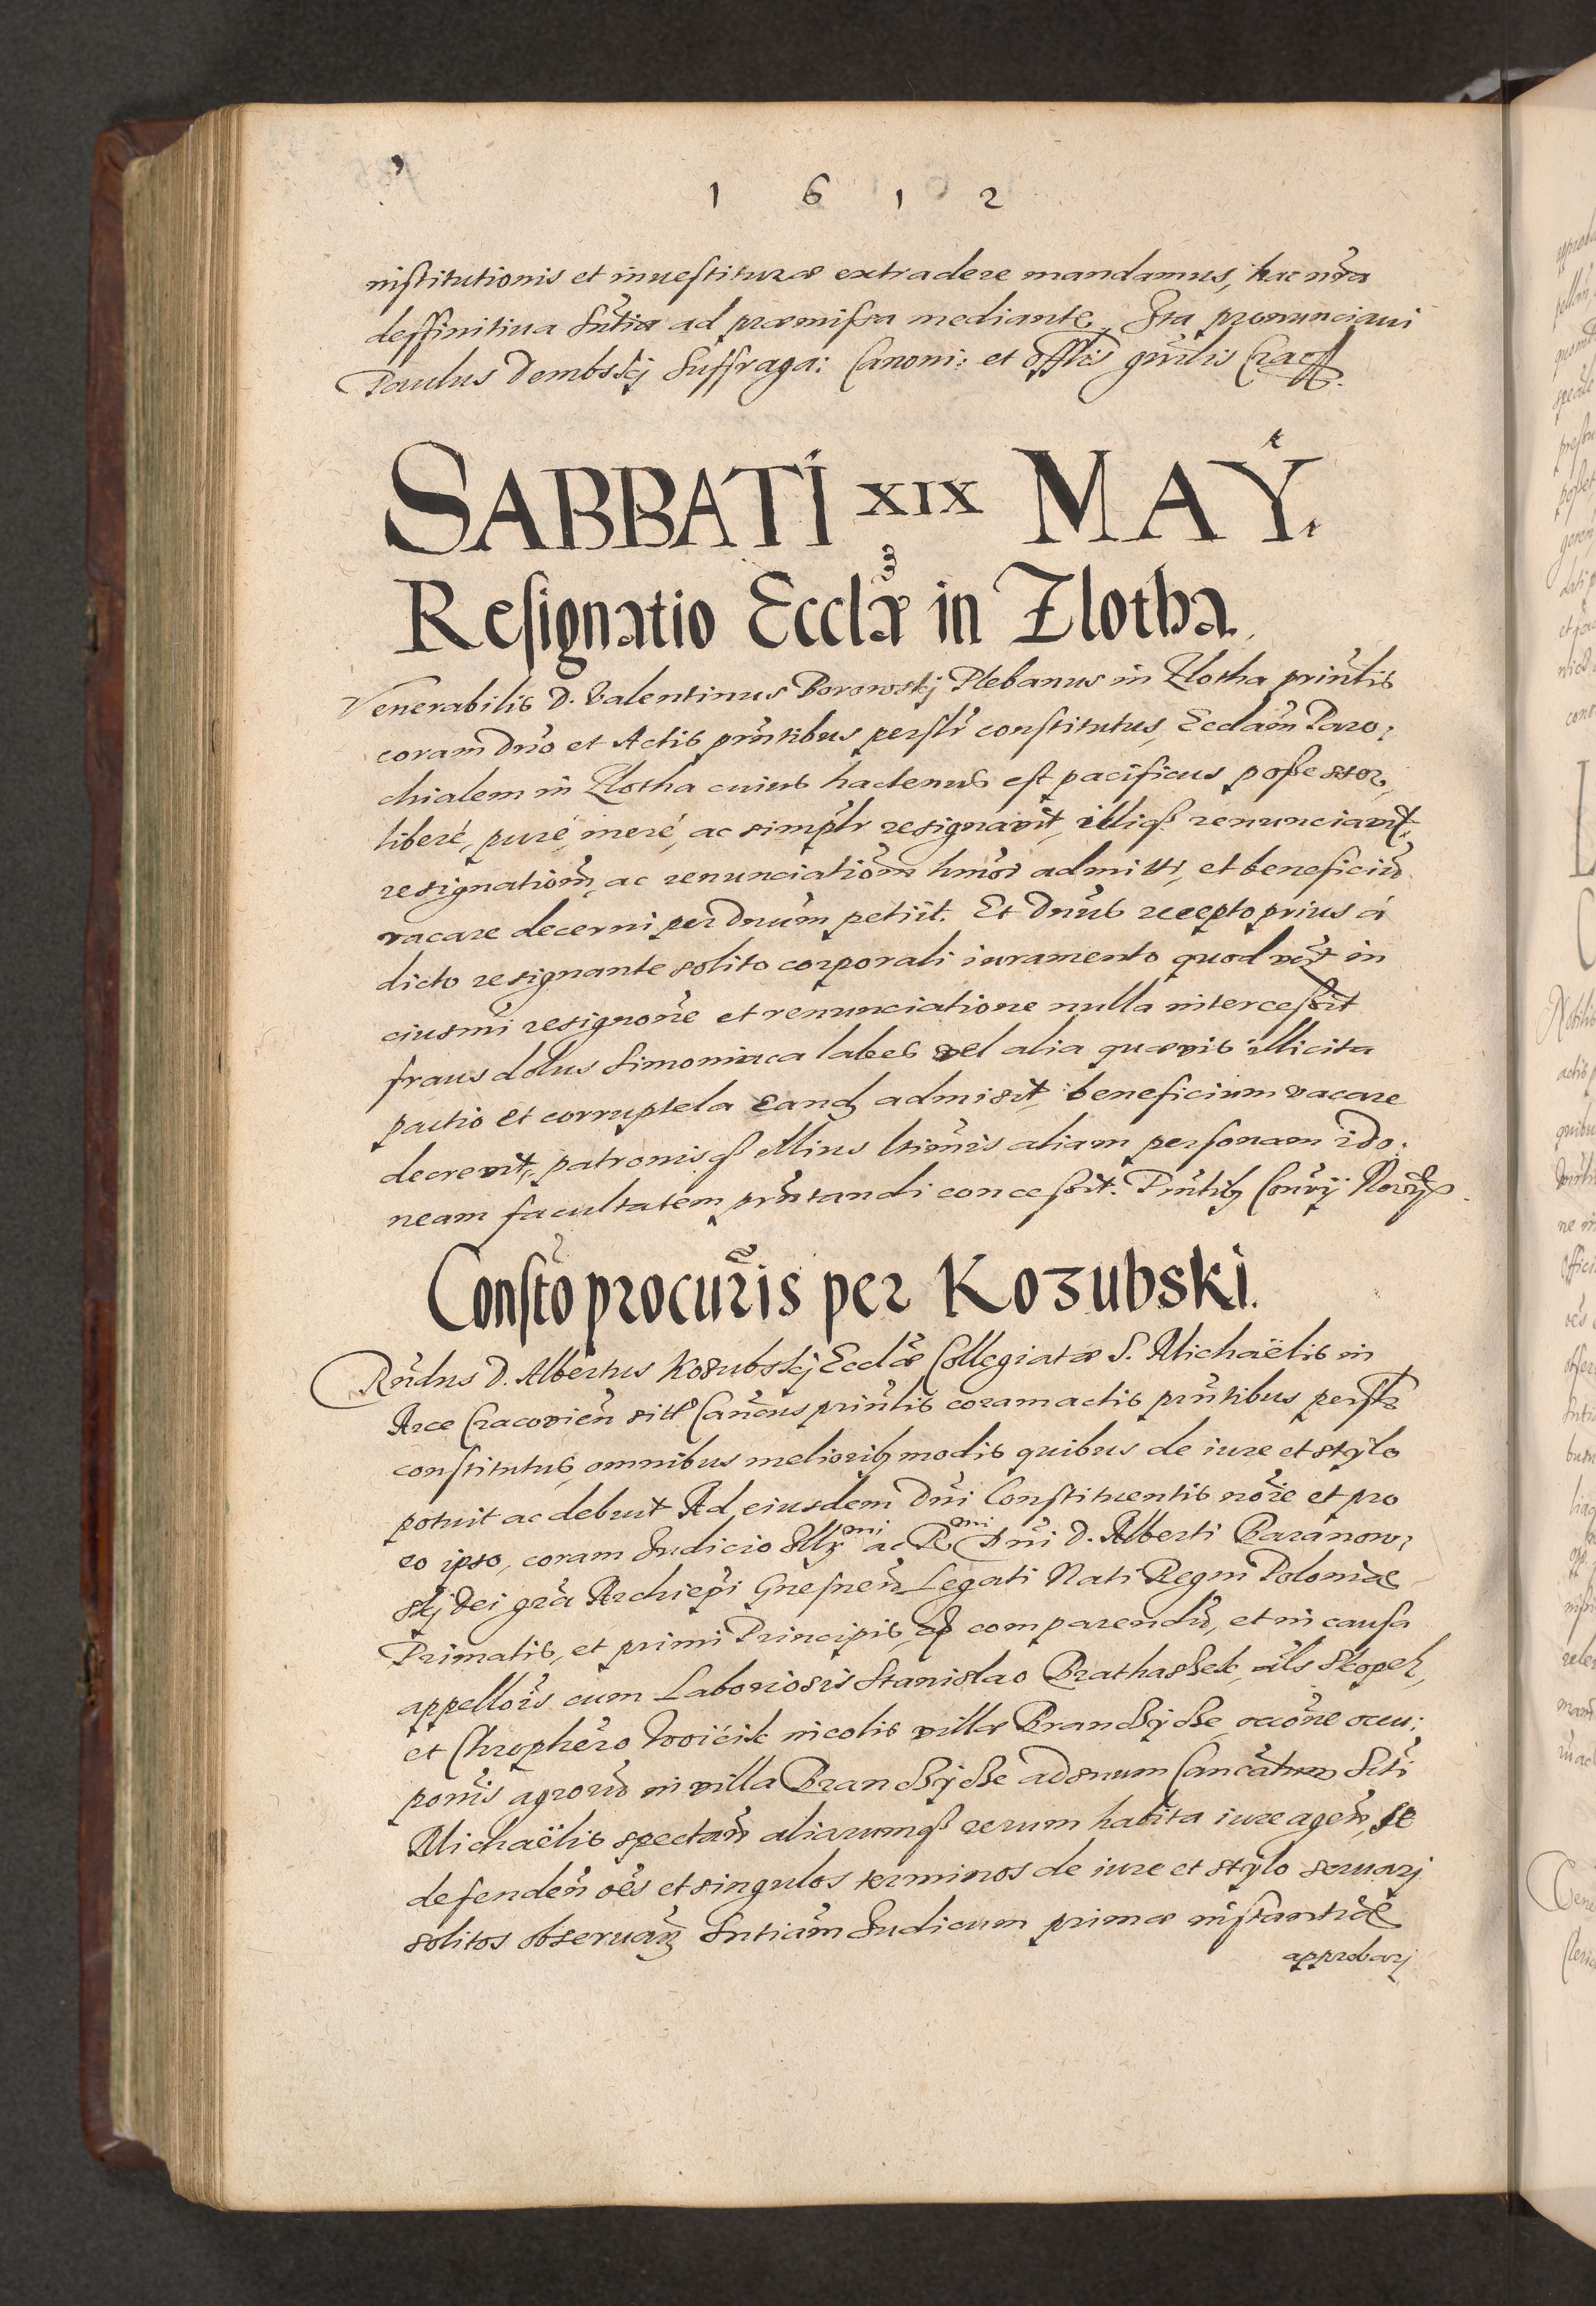 1 6 1 2
institutionis et inuestituræ extradere mandamus, hac nr̃a
deffinitiua sñtia ad præmissa mediante. Ita pronunciaui
Paulus Dembskj Suffraga: Canoni: et Offlis gñrlis Crac
SABBATI XIX MAY.
Resignatio Ecclæ in Zlotha.
Venerabilis D. Valentinus Borowskj Plebanus in Zlotha prñtis
coram Dño et Actis prñtibus persl'r constitutus, Eccl̃am Paro:
chialem in Zlotha cuius hactenus est pacificus possessor,
liberé, puré, meré, ac simpl'r resignavit, illiq3 renunciavit,
resignatiom̃, ac renunciatiom̃ hmõi admitti, et beneficiũ
vacare decerni per Dnũm petiit. Et Dnũs recepto prius á
dicto resignante solito corporali iuramento quod in
eiusmi resignoñe et renunciatione nulla intercessit
fraus dolus Simoniaca labes vel alia quævis illicita
pactio et corruptela Eand3 admisit, beneficium vacare
decrevit, patronisq3 illius ltimis̃ aliam personam ido:
neam facultatem prñtandi concessit. Prñtib3 Conr̃ij
Constõ procur̃is per Kozubski.
Rñdus D. Albertus Kozubskj Eccl̃æ Collegiatæ S. Michaëlis in
Arce Cracovieñ sitæ Cañcus prñtis coram actis prñtibus persl'r
constitutus, omnibus meliorib3 modis quibus de iure et stylo
potuit ac debuit Ad eiusdem Dñi Constituentis noĩe et pro
eo ipso, coram Iudicio Illr̃mi ac Rmi Dñi D. Alberti Baranow:
skj Dei grã Archiepĩ Gnesneñ Legati Nati Regni Poloniæ
Primatis, et primi Principis, comparendũ, et in causa
appellõis cum Laboriosis Stanislao Brathashek, al̃s Skopek,
et Chrõphero Woicik incolis villæ Branczycze, occõne occu:
ponĩs agrorũ in villa Branczycze ad suum Cancãtum Sctĩ
Michaëlis spectañ aliarumq3 rerum habita iure ageñ, se
defendeñ oẽs et singulos terminos de iure et stylo servarj
solitos observañ Sntiãm Iudicum primæ instantiæ
approbarj